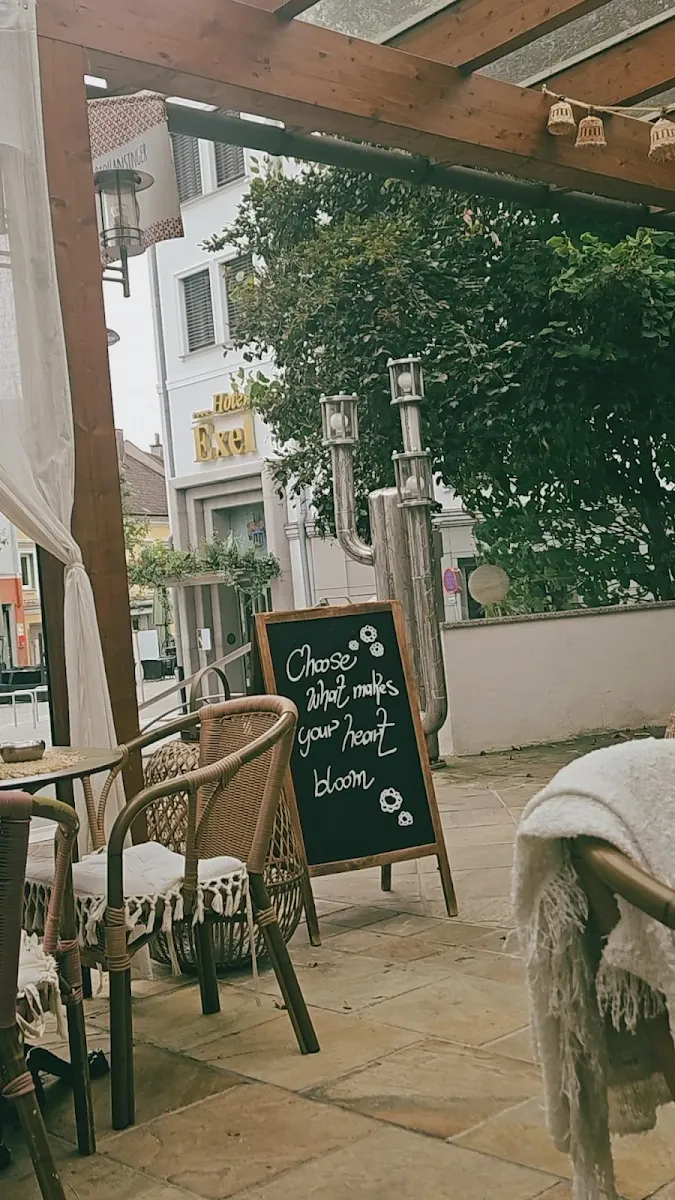 Hotel
Exel
Choose
what makes
your heart
bloom